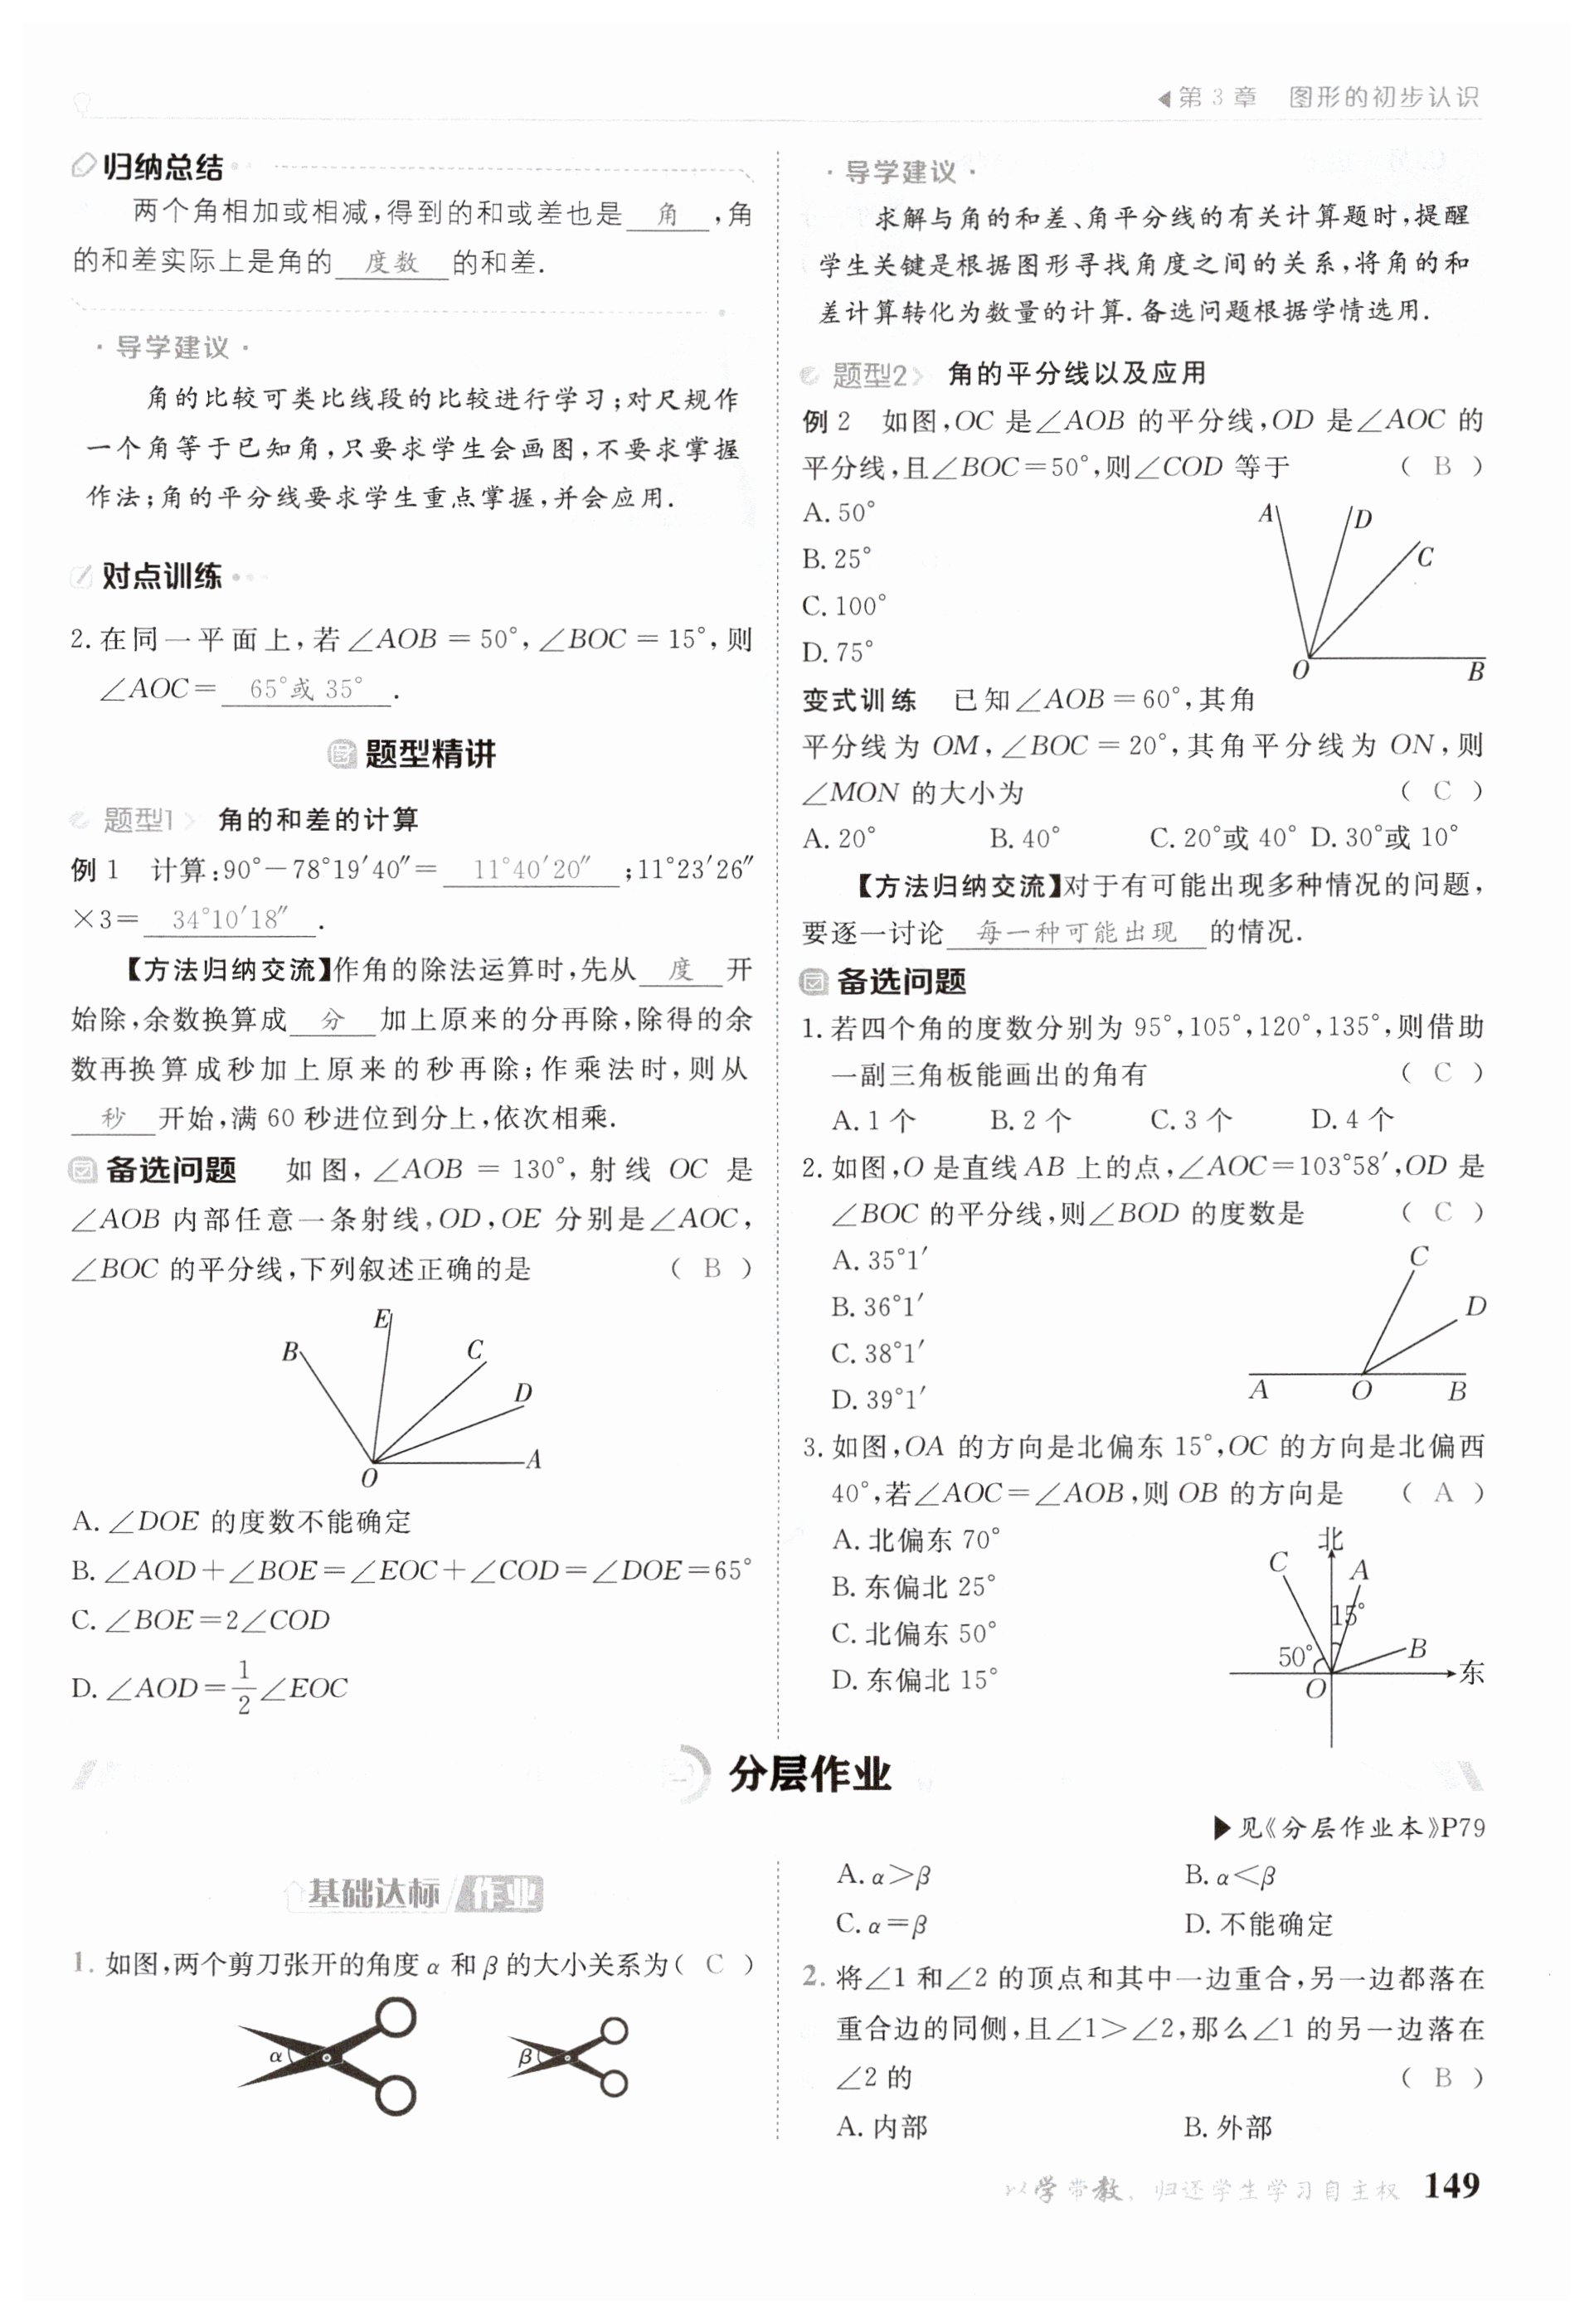 第3章 图形的初步认识
归纳总结
两个角相加或相减,得到的和或差也是 角 ,角
的和差实际上是角的 度数 的和差.
·导学建议·
角的比较可类比线段的比较进行学习;对尺规作
一个角等于已知角,只要求学生会画图,不要求掌握
作法;角的平分线要求学生重点掌握,并会应用.
对点训练
2.在同一平面上,若∠AOB=50°,∠BOC=15°,则
∠AOC= 65°或 35° .
题型精讲
题型1 角的和差的计算
例1 计算:90°-78°19′40″= 11°40′20″ ;11°23′26″
×3= 34°10′18″ .
【方法归纳交流】作角的除法运算时,先从 度 开
始除,余数换算成 分 加上原来的分再除,除得的余
数再换算成秒加上原来的秒再除;作乘法时,则从
秒 开始,满60秒进位到分上,依次相乘.
备选问题 如图,∠AOB=130°,射线OC是
∠AOB内部任意一条射线,OD,OE分别是∠AOC,
∠BOC的平分线,下列叙述正确的是 ( B )
E
B
C
D
A
O
A.∠DOE的度数不能确定
B.∠AOD+∠BOE=∠EOC+∠COD=∠DOE=65°
C.∠BOE=2∠COD
D.∠AOD=1/2∠EOC
·导学建议·
求解与角的和差、角平分线的有关计算题时,提醒
学生关键是根据图形寻找角度之间的关系,将角的和
差计算转化为数量的计算.备选问题根据学情选用.
题型2 角的平分线以及应用
例2 如图,OC是∠AOB的平分线,OD是∠AOC的
平分线,且∠BOC=50°,则∠COD等于 ( B )
A.50°
B.25°
C.100°
D.75°
A
D
C
O
B
变式训练 已知∠AOB=60°,其角
平分线为OM,∠BOC=20°,其角平分线为ON,则
∠MON的大小为 ( C )
A.20° B.40° C.20°或40° D.30°或10°
【方法归纳交流】对于有可能出现多种情况的问题,
要逐一讨论 每一种可能出现 的情况.
备选问题
1.若四个角的度数分别为95°,105°,120°,135°,则借助
一副三角板能画出的角有 ( C )
A.1个 B.2个 C.3个 D.4个
2.如图,O是直线AB上的点,∠AOC=103°58′,OD是
∠BOC的平分线,则∠BOD的度数是 ( C )
A.35°1′
B.36°1′
C.38°1′
D.39°1′
C
D
A O B
3.如图,OA的方向是北偏东15°,OC的方向是北偏西
40°,若∠AOC=∠AOB,则OB的方向是 ( A )
A.北偏东70°
B.东偏北25°
C.北偏东50°
D.东偏北15°
北
C
A
15°
B
50°
东
O
分层作业
▶见《分层作业本》P79
基础达标 作业
1.如图,两个剪刀张开的角度α和β的大小关系为( C )
α
β
A.α>β B.α<β
C.α=β D.不能确定
2.将∠1和∠2的顶点和其中一边重合,另一边都落在
重合边的同侧,且∠1>∠2,那么∠1的另一边落在
∠2的 ( B )
A.内部 B.外部
以学带教,归还学生学习自主权 149